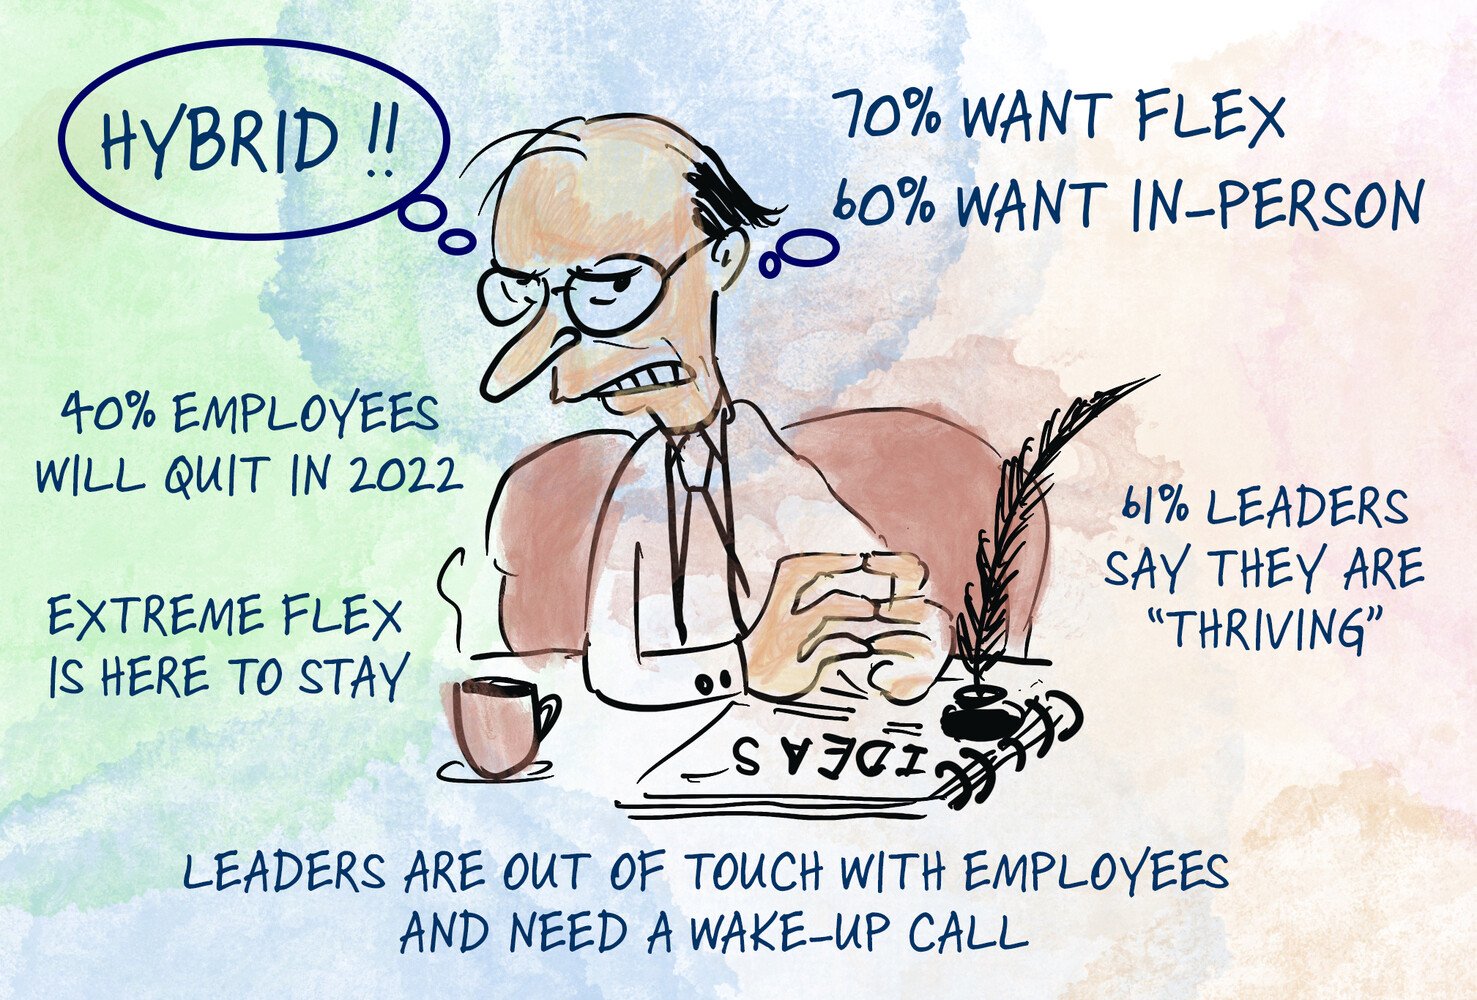 HYBRID !!
70% WANT FLEX
60% WANT IN-PERSON
40% EMPLOYEES
WILL QUIT IN 2022
61% LEADERS
SAY THEY ARE
"THRIVING"
EXTREME FLEX
IS HERE TO STAY
IDEAS
LEADERS ARE OUT OF TOUCH WITH EMPLOYEES
AND NEED A WAKE-UP CALL